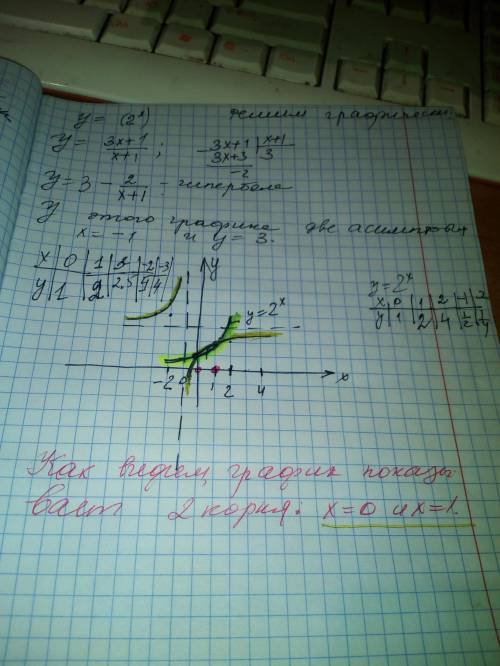 y = (2¹) решим графически
y = 3x+1 / x+1 ; - 3x+1 | x+1
3x+3 | 3
-2
y = 3 - 2 / x+1 - гипербола
У этого графика две асимптоты
x = -1 и y = 3.
x | 0 | 1 | 3 | -2 | -3
y | 1 | 2 | 2,5 | 5 | 4
y = 2ˣ
x | 0 | 1 | 2 | -1 | -2
y | 1 | 2 | 4 | 1/2 | 1/4
y
y = 2ˣ
-2 0 1 2 4 x
Как видем, график показы-
вает 2 корня: x=0 и x=1.